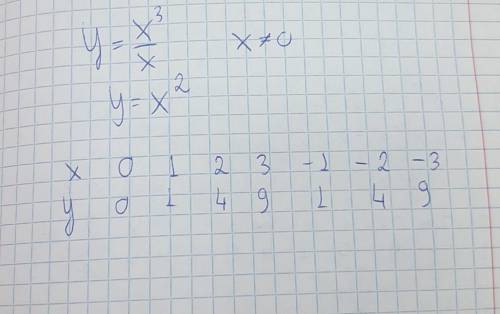 y = x³/x x ≠ 0
y = x²
x 0 1 2 3 -1 -2 -3
y 0 1 4 9 1 4 9